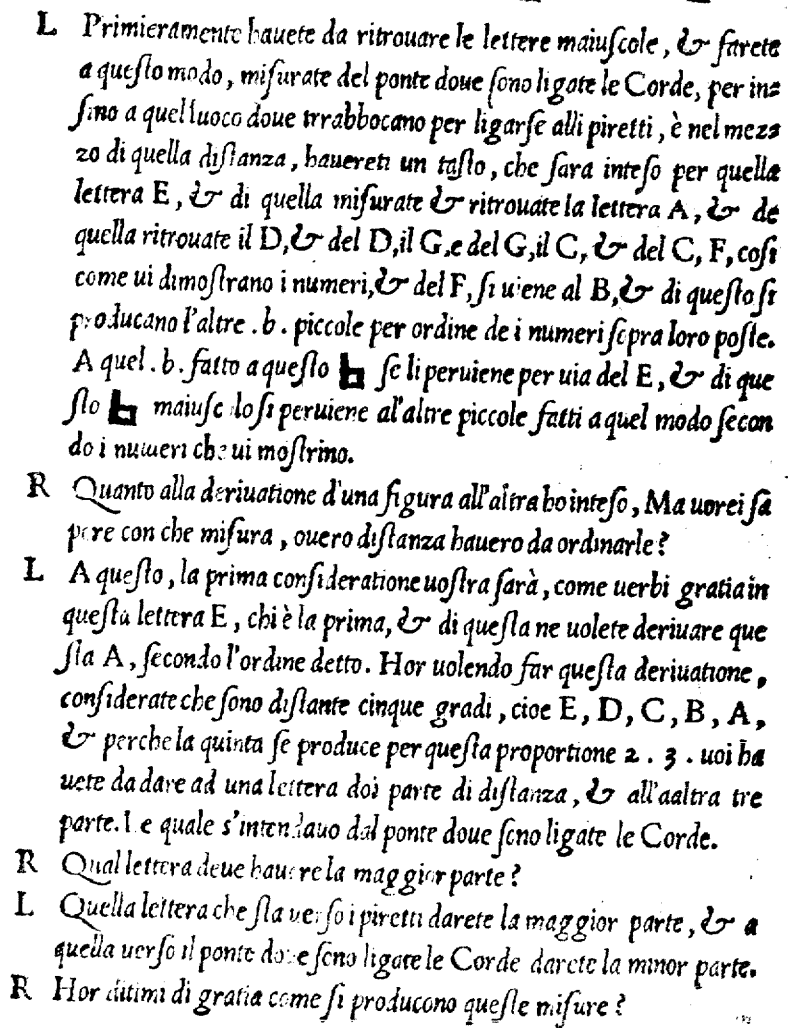 L Primieramente hauete da ritrouare le lettere maiuſcole, & farete
a queſto modo, miſurate del ponte doue ſono ligate le Corde, per in=
ſino a quel luoco doue trrabbocano per ligarſe alli piretti, è nel mez=
zo di quella diſtanza, hauereti un taſto, che ſara inteſo per quella
lettera E, & di quella miſurate & ritrouate la lettera A, & de
quella ritrouate il D, & del D, il G, e del G, il C, & del C, F, coſi
come ui dimoſtrano i numeri, & del F, ſi uiene al B, & di queſto ſi
producano l'altre .b. piccole per ordine de i numeri ſopra loro poſte.
A quel .b. fatto a queſto ♮ ſe li peruiene per uia del E, & di que
ſto ♮ maiuſculo ſi peruiene al'altre piccole fatti a quel modo ſecon
do i numeri che ui moſtrino.
R Quanto alla deriuatione d'una figura all'altra ho inteſo, Ma uorei ſa
pere con che miſura, ouero diſtanza hauero da ordinarle?
L A queſto, la prima conſideratione uoſtra ſarà, come uerbi gratia in
queſta lettera E, chi è la prima, & di queſta ne uolete deriuare que
ſta A, ſecondo l'ordine detto. Hor uolendo far queſta deriuatione,
conſiderate che ſono diſtante cinque gradi, cioe E, D, C, B, A,
& perche la quinta ſe produce per queſta proportione 2 . 3 . uoi ha
uete da dare ad una lettera doi parte di diſtanza, & all'aaltra tre
parte. Le quale s'intendauo dal ponte doue ſono ligate le Corde.
R Qual lettera deue hauere la maggior parte?
L Quella lettera che ſta uerſo i piretti darete la maggior parte, & a
quella uerſo il ponte doue ſono ligate le Corde darete la minor parte.
R Hor ditimi di gratia come ſi producono queſte miſure?